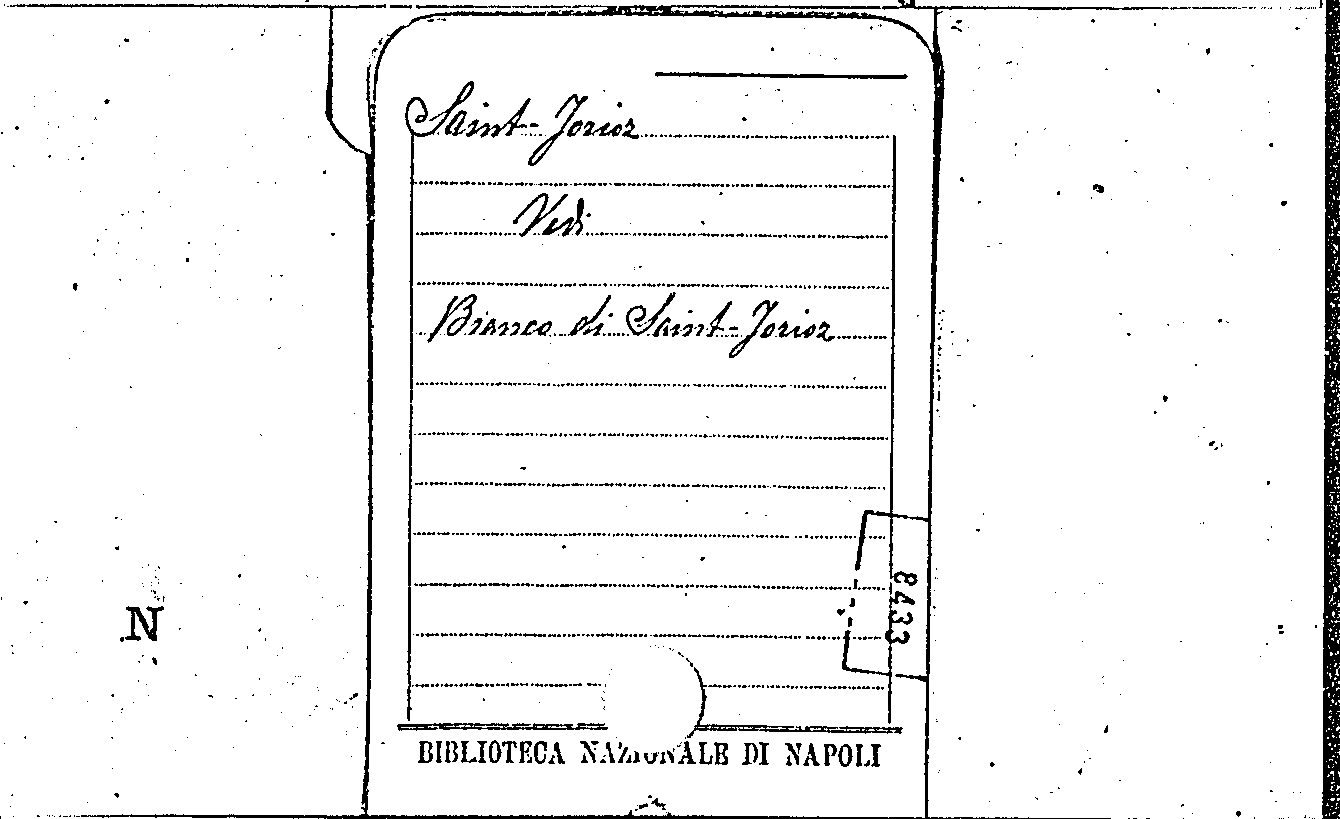 Saint-Jorioz
Vedi
Bianco di Saint-Jorioz
8433
N
BIBLIOTECA NAZIONALE DI NAPOLI